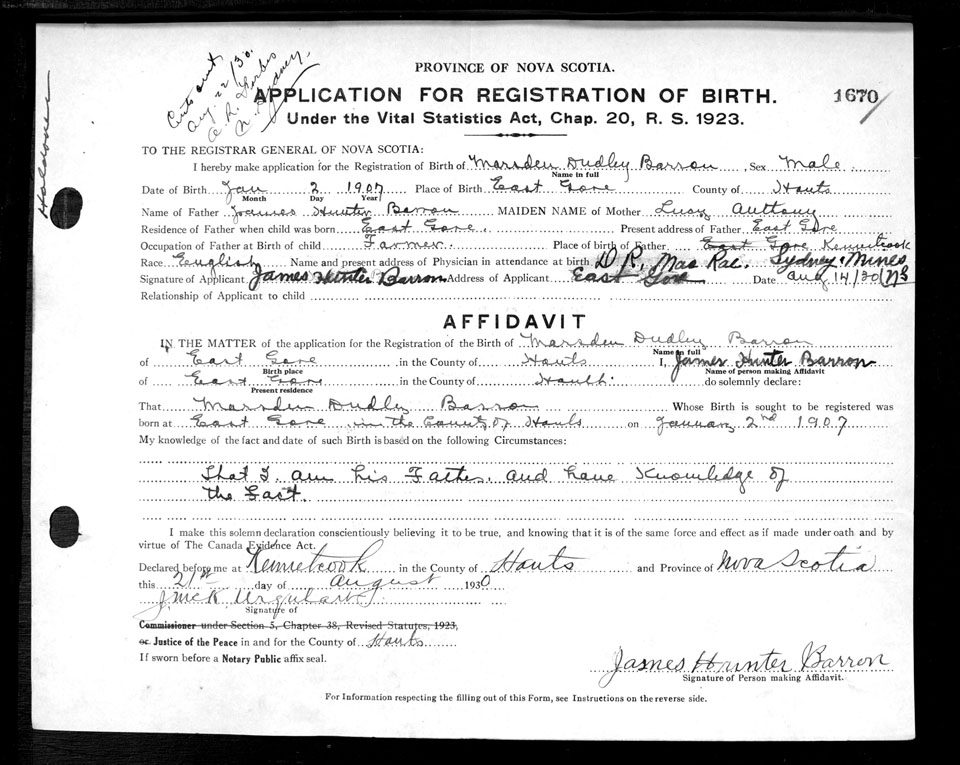 Cert. sent
Aug. 22/30.
N. Sydney.
Holdowne
PROVINCE OF NOVA SCOTIA.
APPLICATION FOR REGISTRATION OF BIRTH.
1670
Under the Vital Statistics Act, Chap. 20, R. S. 1923.
TO THE REGISTRAR GENERAL OF NOVA SCOTIA:
I hereby make application for the Registration of Birth of Marsden Dudley Barron, Sex Male.
Name in full
Date of Birth Jan 2 1907 Place of Birth East Gore County of Hants
Month Day Year
Name of Father James Hunter Barron MAIDEN NAME of Mother Lucy Anttony
Residence of Father when child was born East Gore. Present address of Father East Gore
Occupation of Father at Birth of child Farmer. Place of birth of Father East Gore Kennetcook
Race English Name and present address of Physician in attendance at birth D R. Mac Rae. Sydney Mines
Signature of Applicant James Hunter Barron Address of Applicant East Gore Date Aug 14/30 NS
Relationship of Applicant to child
AFFIDAVIT
IN THE MATTER of the application for the Registration of the Birth of Marsden Dudley Barron
Name in full
of East Gore in the County of Hants I, James Hunter Barron
Birth place Name of person making Affidavit
of East Gore in the County of Hants do solemnly declare:
Present residence
That Marsden Dudley Barron Whose Birth is sought to be registered was
born at East Gore in the County of Hants on January 2nd 1907
My knowledge of the fact and date of such Birth is based on the following Circumstances:
That I am his Father. and have Knowledge of
the Fact.
I make this solemn declaration conscientiously believing it to be true, and knowing that it is of the same force and effect as if made under oath and by
virtue of The Canada Evidence Act.
Declared before me at Kennetcook in the County of Hants and Province of Nova Scotia
this 21st day of august 1930
J McK Urquhart
Signature of
Commissioner under Section 5, Chapter 38, Revised Statutes, 1923,
or Justice of the Peace in and for the County of Hants
If sworn before a Notary Public affix seal.
James Hunter Barron
Signature of Person making Affidavit.
For Information respecting the filling out of this Form, see Instructions on the reverse side.